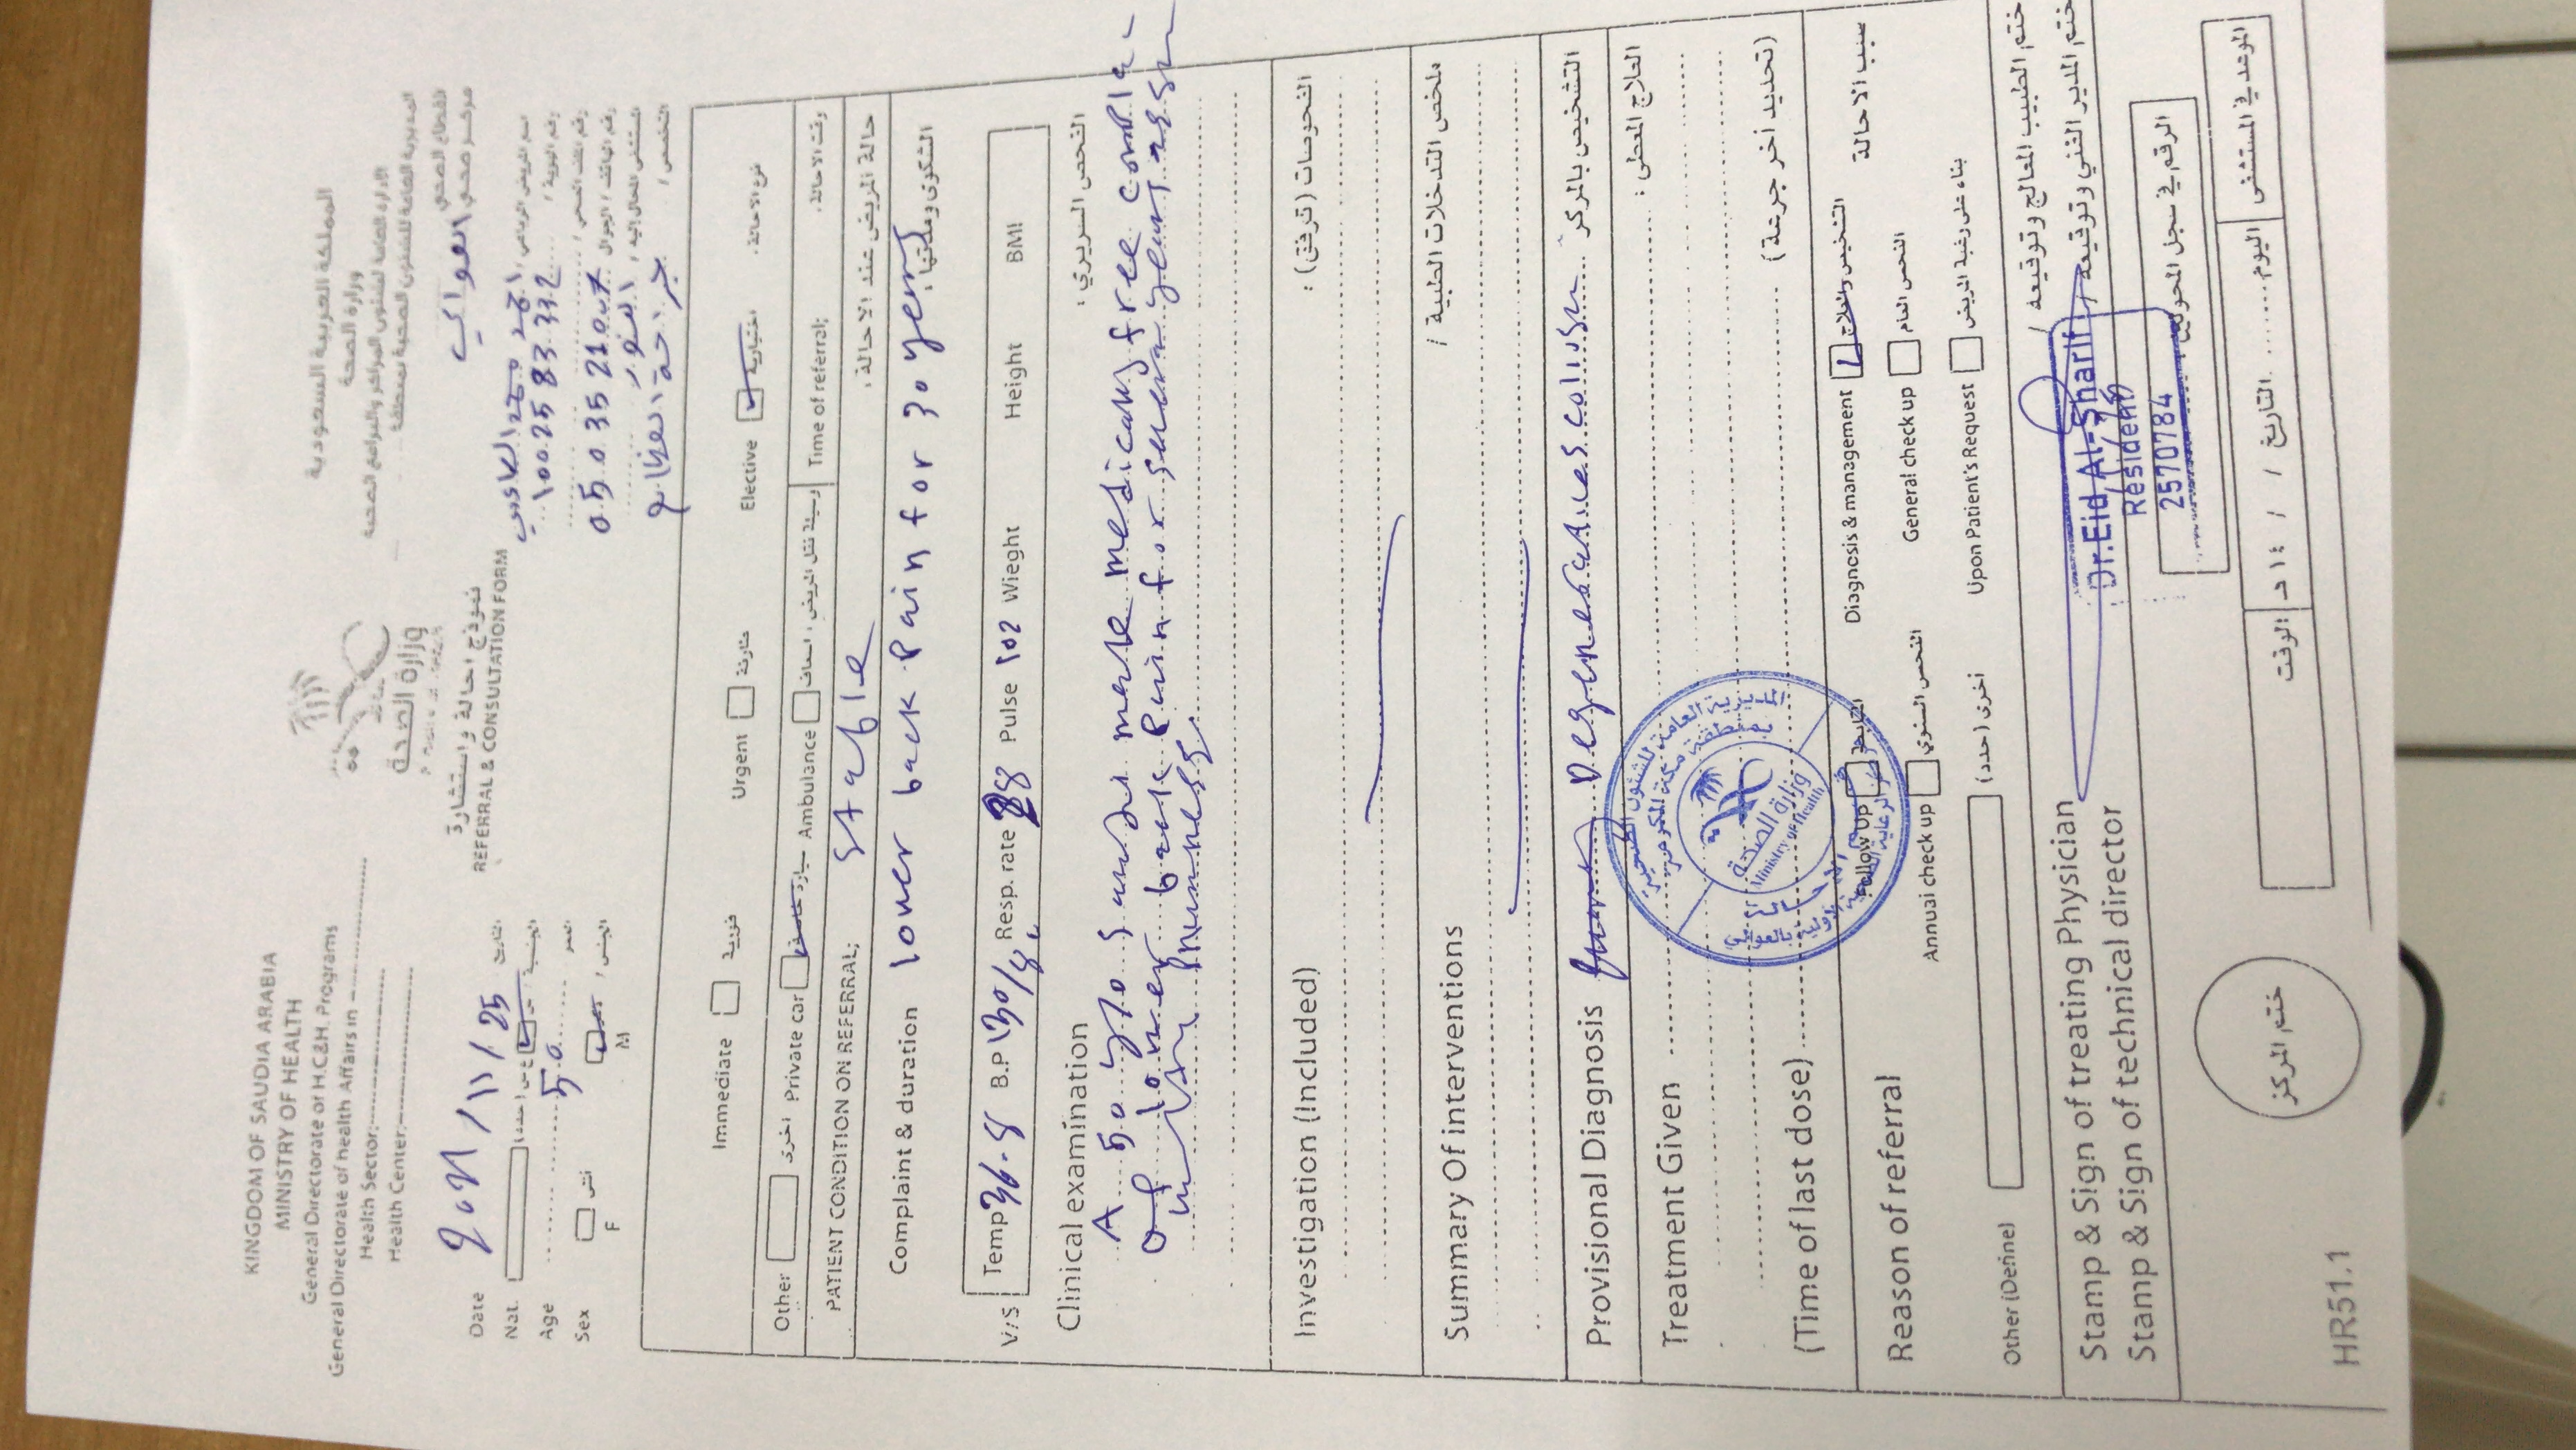 KINGDOM OF SAUDIA ARABIA
MINISTRY OF HEALTH
General Directorate of H.C&H. Programs
General Directorate of health Affairs in
Health Sector:
Health Center:
وزارة الصحة
المملكة العربية السعودية
وزارة الصحة
الإدارة العامة لشئون المراكز والبرامج الصحية
المديرية العامة للشئون الصحية بمنطقة
القطاع الصحي
مركز صحي العوالي
نموذج احالة واستشارة
REFERRAL & CONSULTATION FORM
Date 2021/11/25 التاريخ
Nat. الجنسية:
Age 50 العمر
Sex F انثى M الجنس:
اسم المريض الرباعي:
رقم الهوية: 1002583332
رقم الملف الصحي:
رقم الهاتف / الجوال
مستشفى المحال إليه: النور
التخصص / جراحة العظام
Immediate فورية Urgent Elective اختيارية نوع الاحالة.
Other اخرى Private car سيارة خاصة Ambulance وسيلة نقل المريض، اسعاف Time of referral; وقت الاحالة.
PATIENT CONDITION ON REFERRAL; Stable حالة المريض عند الاحالة.
Complaint & duration lower back Pain for 30 years الشكوى ومدتها:
V/S Temp 36.8 B.P 130/80 Resp. rate Pulse 102 Wieght Height BMI
Clinical examination الفحص السريري:
A 50 y/o Saudi male medically free
of lower back Pain for years
Investigation (Included) الفحوصات (ترفق):
Summary Of interventions ملخص التدخلات الطبية /
Provisional Diagnosis التشخيص بالمركز
Treatment Given العلاج المعطى:
(Time of last dose) (تحديد أخر جرعة)
المديرية العامة للشئون الصحية
بمنطقة مكة المكرمة
وزارة الصحة
Ministry of Health
Reason of referral Follow Up المتابعة Diagnosis & management التشخيص والعلاج سبب الاحالة
Annual check up الفحص السنوي General check up الفحص العام
Other (Define) أخرى (حدد) Upon Patient's Request بناء على رغبة المريض
Stamp & Sign of treating Physician ختم الطبيب المعالج وتوقيعه /
Stamp & Sign of technical director ختم المدير الفني وتوقيعه /
Dr.Eid Al-Sharif
Resident
2570784
الرقم في سجل المحولين:
الموعد في المستشفى اليوم ....... التاريخ / / ١٤ هـ الوقت
ختم المركز
HR51.1